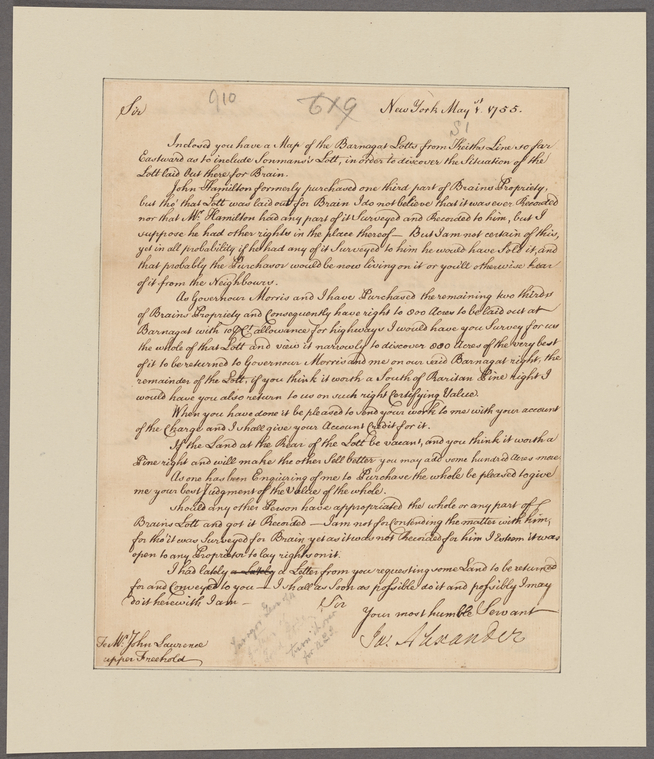 Sir
910
619
New York May 1st 1755.
51
Inclosed you have a Map of the Barnagat Lotts from Keiths Line so far
Eastward as to include Sonmans's Lott, in order to discover the Situation of the
Lott laid Out there for Brain.
John Hamilton formerly purchased one third part of Brains Propriety,
but tho' that Lott was laid out for Brain I do not believe that it was ever Recorded
nor that Mr. Hamilton had any part of it Surveyed and Recorded to him, but I
suppose he had other rights in the place thereof — But I am not certain of this,
yet in all probability if he had any of it Surveyed to him he would have Sold it, and
that probably the Purchasor would be now living on it or you'll otherwise hear
of it from the Neighbours.
As Governour Morris and I have Purchased the remaining two thirds
of Brains Propriety and Consequently have right to 800 Acres to be laid out at
Barnagat with allowance for highways I would have you Survey for us
the whole of that Lott and view it narrowly to discover 800 Acres of the very best
of it to be returned to Governour Morris and me on our said Barnagat right, the
remainder of the Lott, if you think it worth a South of Raritan Pine right I
would have you also return to us on such right Certifying Value.
When you have done it be pleased to send your work to me with your account
of the Charge and I shall give your Account Credit for it.
If the Land at the Rear of the Lott be vacant, and you think it worth a
Pine right and will make the other Sell better you may add some hundred Acres more
As one has been Enquiring of me to Purchase the whole be pleased to give
me your best Judgment of the Value of the whole.
Should any other Person have appropriated the whole or any part of
Brains Lott and got it Recorded — I am not for Contending the matter with him,
for tho' it was Surveyed for Brain yet as it was not Recorded for him I Esteem it was
open to any Proprietor to lay rights on it.
I had lately a Lately a Letter from you requesting some Land to be returned
for and Conveyed to you — I shall as soon as possible do it and possibly I may
do it herewith I am —
Sir
Your most humble Servant
Jas. Alexander
To Mr. John Lawrence
upper Freehold